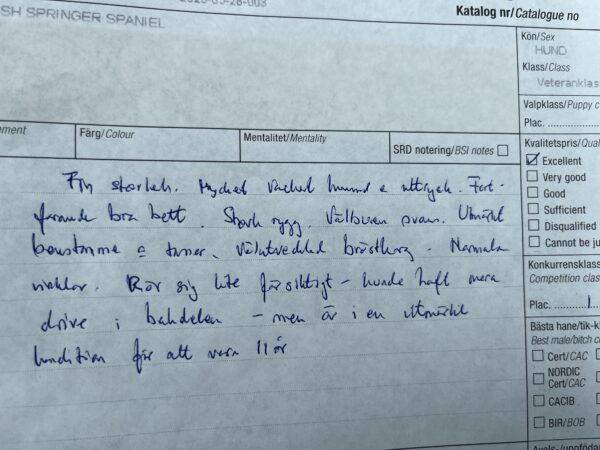 SH SPRINGER SPANIEL
Katalog nr/Catalogue no
Kön/Sex
HUND
Klass/Class
Veteranklas
Valpklass/Puppy c
Plac.
ement
Färg/Colour
Mentalitet/Mentality
SRD notering/BSI notes
Kvalitetspris/Qual
Excellent
Very good
Good
Sufficient
Disqualified
Cannot be ju
Konkurrensklass
Competition clas
Plac. 1
Bästa hane/tik-k
Best male/bitch c
Cert/CAC
NORDIC
Cert/CAC
CACIB
BIR/BOB
Fin storlek. Mycket vackert huvud & uttryck. Fort-
farande bra bett. Stark rygg. Välburen svans. Utmärkt
benstomme & tassar. Välutvecklad bröstkorg. Normala
vinklar. Rör sig lite försiktigt - kunde haft mera
drive i bakdelen - men är i en utmärkt
kondition för att vara 11 år